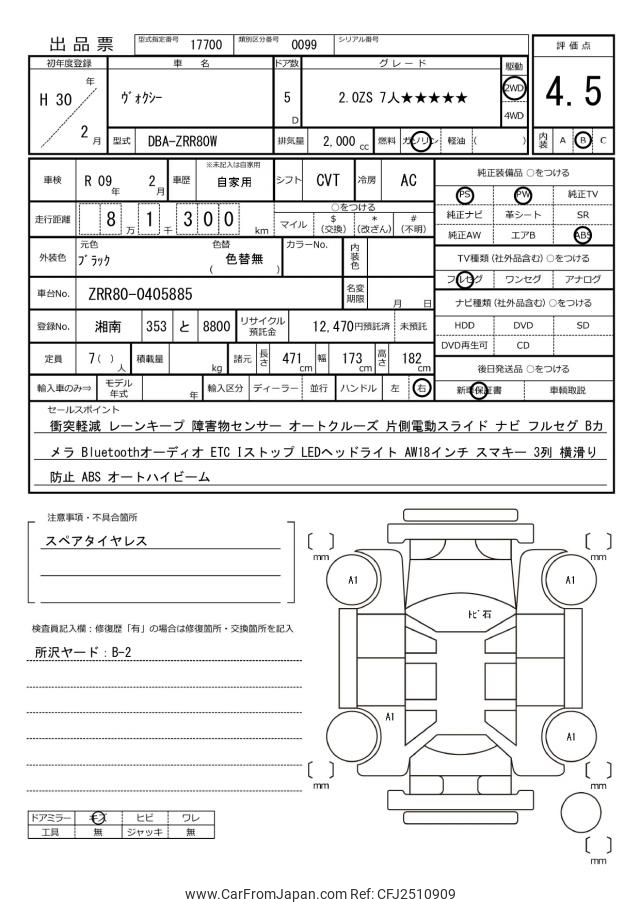 出品票 型式指定番号 17700 類別区分番号 0099 シリアル番号
評価点
4.5
内装 A B C
初年度登録 車名 ドア数 グレード 駆動
H 30 年 / 2 月 ヴォクシー 5 D 2.0ZS 7人★★★★★ 2WD 4WD
型式 DBA-ZRR80W 排気量 2,000 cc 燃料 ガソリン 軽油 ( )
車検 R 09 年 2 月 車歴 ※未記入は自家用 自家用 シフト CVT 冷房 AC
走行距離 8 万 1 千 3 0 0 km
○をつける
マイル $ (交換) * (改ざん) # (不明)
外装色 元色 ブラック 色替 ( 色替無 ) カラーNo. 内装色
車台No. ZRR80-0405885 名変期限 月 日
登録No. 湘南 353 と 8800 リサイクル預託金 12,470円預託済 未預託
定員 7( ) 人 積載量 kg 諸元 長さ 471 cm 幅 173 cm 高さ 182 cm
輸入車のみ⇒ モデル年式 年 輸入区分 ディーラー 並行 ハンドル 左 右
純正装備品 ○をつける
PS PW 純正TV
純正ナビ 革シート SR
純正AW エアB ABS
TV種類 (社外品含む) ○をつける
フルセグ ワンセグ アナログ
ナビ種類 (社外品含む) ○をつける
HDD DVD SD
DVD再生可 CD
後日発送品 ○をつける
新車保証書 車輌取説
セールスポイント
衝突軽減 レーンキープ 障害物センサー オートクルーズ 片側電動スライド ナビ フルセグ Bカ
メラ Bluetoothオーディオ ETC Iストップ LEDヘッドライト AW18インチ スマキー 3列 横滑り
防止 ABS オートハイビーム
注意事項・不具合箇所
スペアタイヤレス
検査員記入欄：修復歴「有」の場合は修復箇所・交換箇所を記入
所沢ヤード：B-2
mm mm
A1 A1
トビ石
A1 A1
mm mm
mm
ドアミラー キズ ヒビ ワレ
工具 無 ジャッキ 無
www.CarFromJapan.com Ref: CFJ2510909